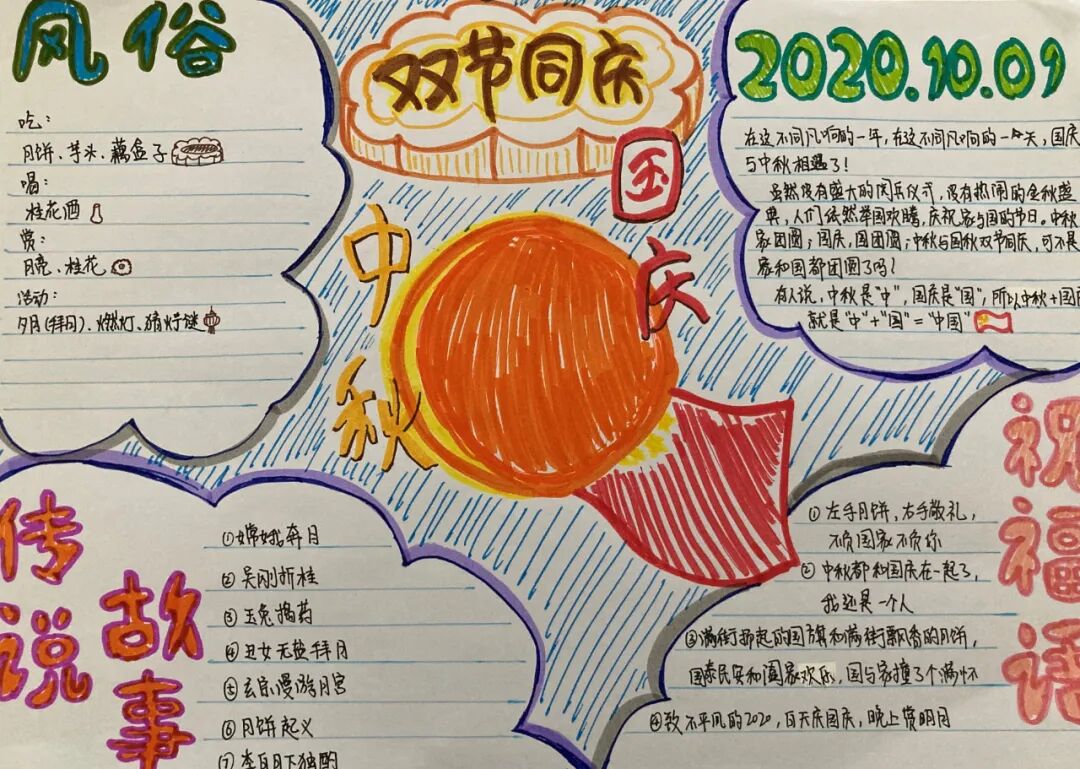 双节同庆
国庆
中秋
风俗
吃:
月饼、芋头、藕盒子
喝:
桂花酒
赏:
月亮、桂花
活动:
夕月(拜月)、燃灯、猜灯谜
2020.10.01
在这不同凡响的一年,在这不同凡响的一天,国庆
与中秋相遇了!
虽然没有盛大的阅兵仪式,没有热闹的金秋盛
典,人们依然举国欢腾,庆祝家与国的节日。中秋
家团圆;国庆,国团圆;中秋与国秋双节同庆,可不是
家和国都团圆了吗!
有人说,中秋是"中",国庆是"国",所以中秋+国
就是"中"+"国"="中国"
传说
故事
①嫦娥奔月
②吴刚折桂
③玉兔捣药
④丑女无盐拜月
⑤玄宗漫游月宫
⑥月饼起义
⑦李白月下独酌
祝福语
①左手月饼,右手敬礼,
不负国家不负你
②中秋都和国庆在一起了,
我还是一个人
③满街挂起的国旗和满街飘香的月饼,
国泰民安和阖家欢乐,国与家撞了个满怀
④致不平凡的2020,白天庆国庆,晚上赏明月